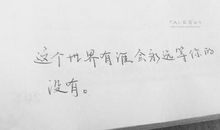 这个世界有谁会永远等你的
没有。